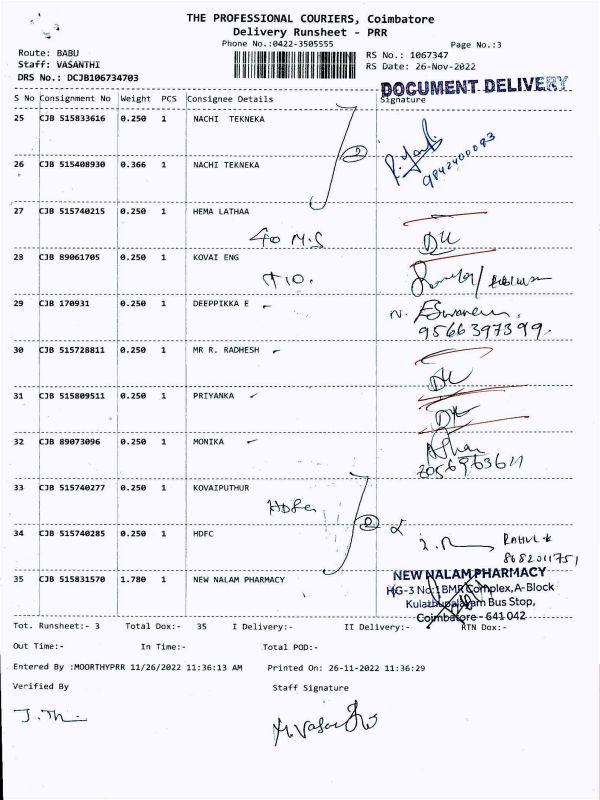 THE PROFESSIONAL COURIERS, Coimbatore
Delivery Runsheet - PRR
Phone No.:0422-3505555
Page No.:3
Route: BABU
RS No.: 1067347
Staff: VASANTHI
RS Date: 26-Nov-2022
DRS No.: DCJB106734703
DOCUMENT DELIVERY
S No Consignment No Weight PCS Consignee Details Signature
25 CJB 515833616 0.250 1 NACHI TEKNEKA
2
9842400083
26 CJB 515408930 0.366 1 NACHI TEKNEKA
27 CJB 515740215 0.250 1 HEMA LATHAA
40 M.S
DL
28 CJB 89061705 0.250 1 KOVAI ENG
29 CJB 170931 0.250 1 DEEPPIKKA E
N. Eswaren.
9566397399
30 CJB 515728811 0.250 1 MR R. RADHESH
DL
31 CJB 515809511 0.250 1 PRIYANKA
DL
32 CJB 89073096 0.250 1 MONIKA
33 CJB 515740277 0.250 1 KOVAIPUTHUR
HDFC
2
34 CJB 515740285 0.250 1 HDFC
RAHUL
8682011751
35 CJB 515831570 1.780 1 NEW NALAM PHARMACY
NEW NALAM PHARMACY
HG-3 No:1 BMR Complex, A-Block
Kulathupalayam Bus Stop,
Coimbatore - 641 042
Tot. Runsheet:- 3 Total Dox:- 35 I Delivery:- II Delivery:- RTN Dox:-
Out Time:- In Time:- Total POD:-
Entered By :MOORTHYPRR 11/26/2022 11:36:13 AM Printed On: 26-11-2022 11:36:29
Verified By Staff Signature